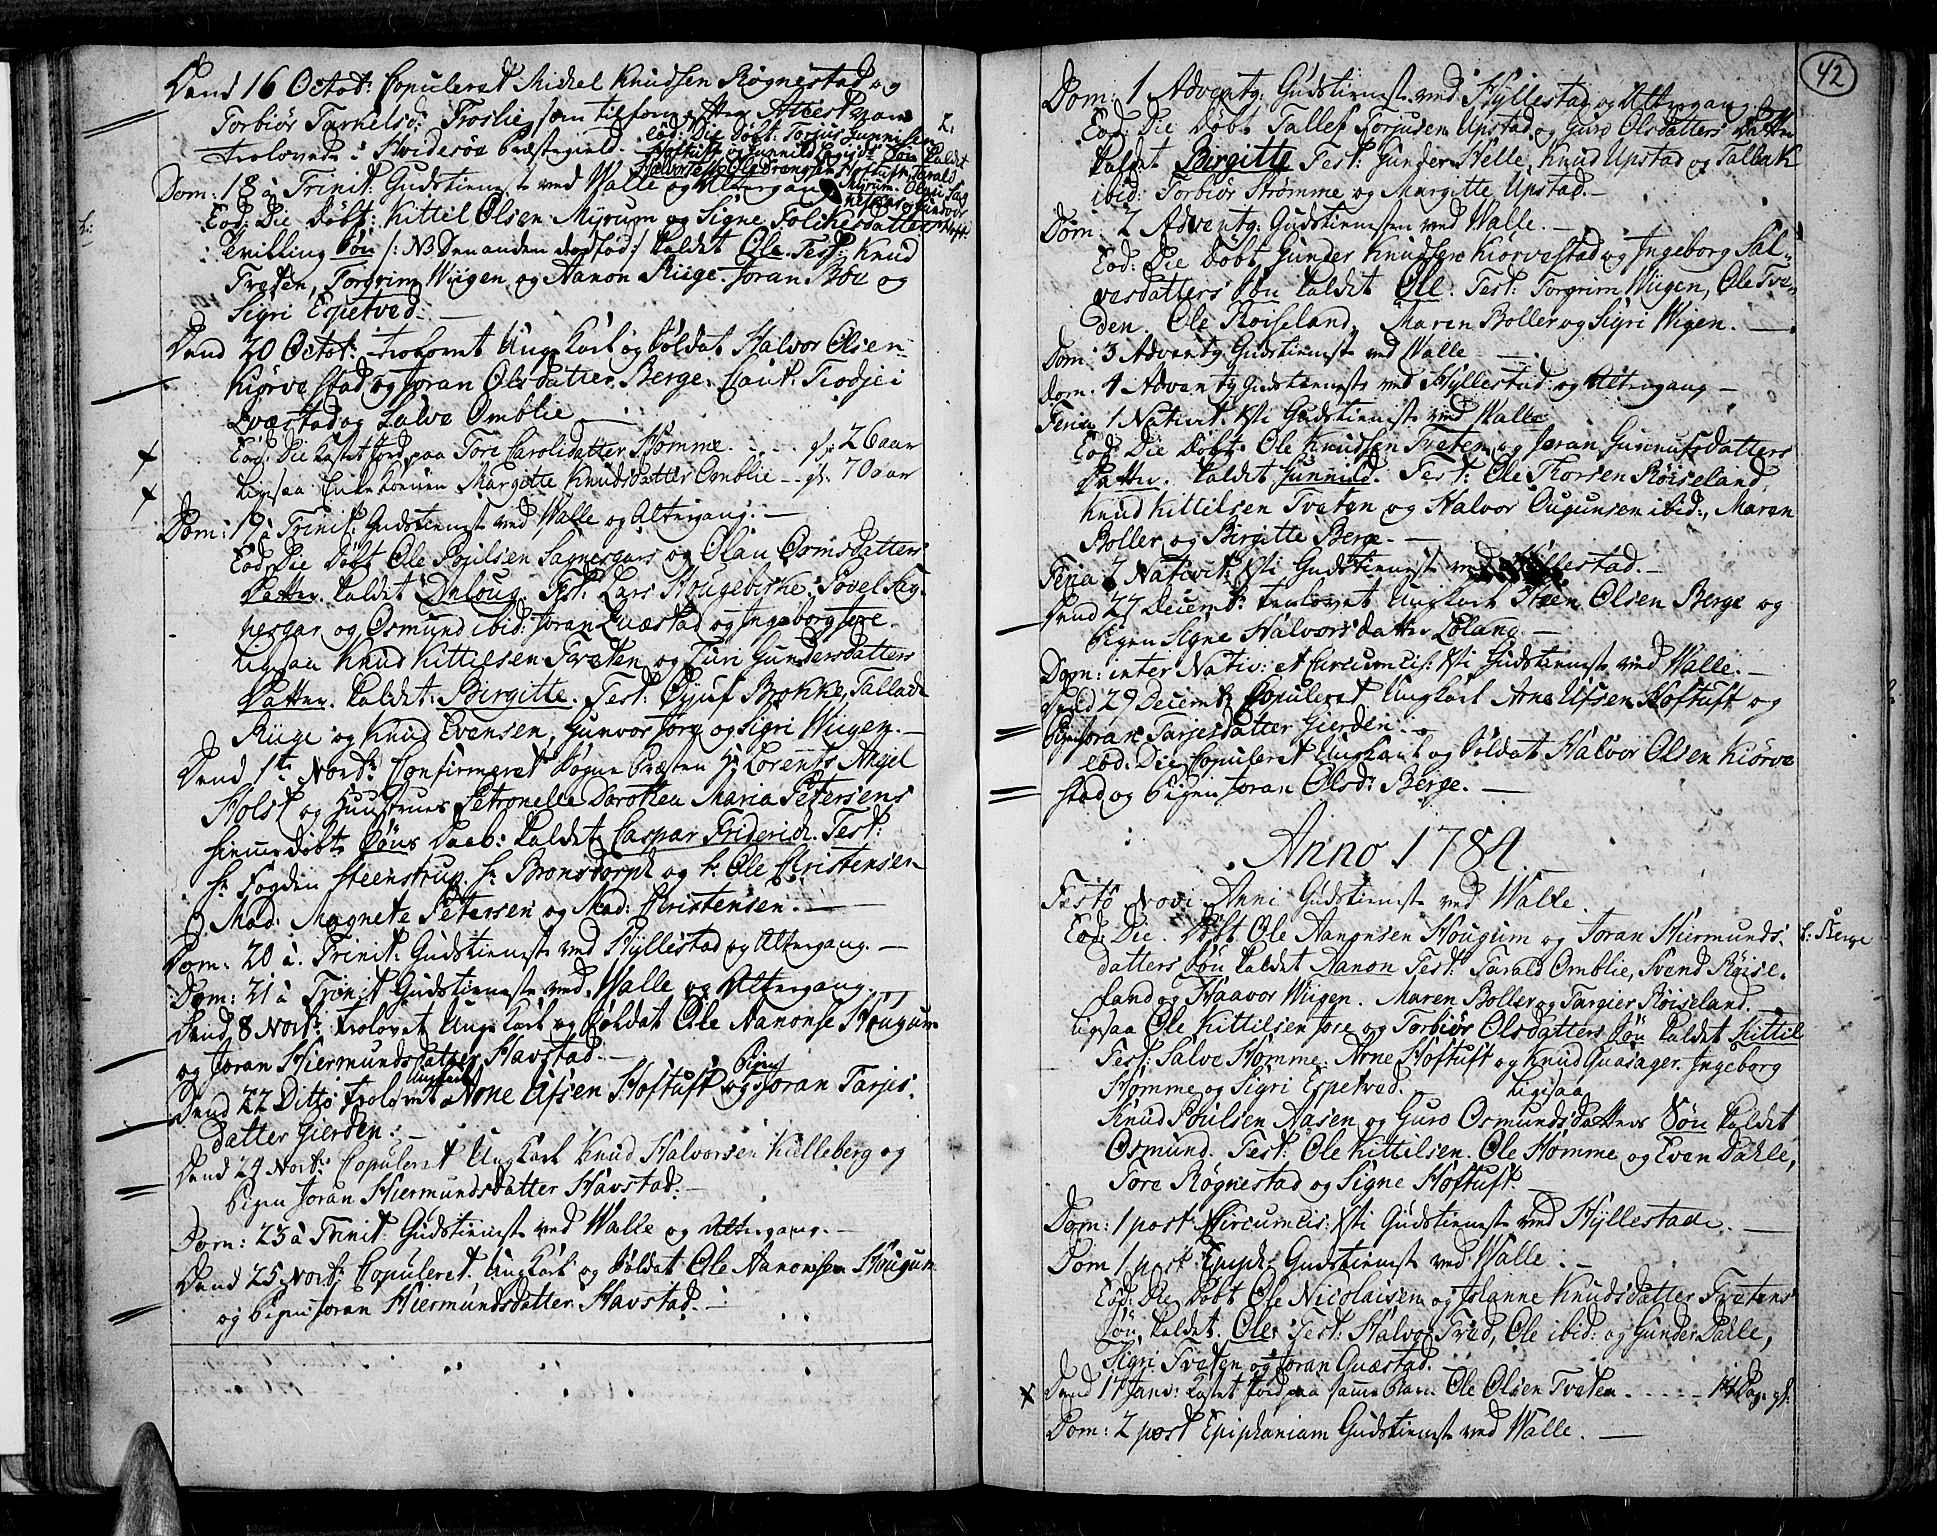 Dend 16 Octob: Copuleret Michel Knudsen Røgnestad og
Torbiør Tarkelsd: Troslie, som tilforn efter Attest var
trolovede i Hvidesøe Præstegield.
Eod: Die Døbt Torjus Gunnilfsen
Hoftuft og Gunnild
Dom: 18 à Trinit: Gudstieneste ved Walle og Altergang
Eod: Die Døbt: Kittil Olsen Myrum og Signe Folckesdatters
Tvilling Søn /: NB Den anden dødfød :/ kaldet Ole. Test: Knud
Tveten, Torgrim Wiigen og Aanon Riige. Joran Boe og
Sigri Espetved. —
Dend 20 Octob: trolovet Ung Karl og Soldat Halvor Olsen
Kiørvestad og Joran Olsdatter Berge. Caut: Tiodje i
Qvæstad og Salve Omblie
Eod: Die kastet Jord paa Tore Carolidatter Homme. . . . . gl: 26 aar
Ligesaa Enke Konen Margitte Knudsdatter Omblie - - gl: 70 aar
Dom: 19 à Trinit: Gudstieneste ved Walle og Altergang. —
Eod: Die Døbt Ole Bojilsen Sagnesgar og Olau Osmsdatters
Datter. kaldet Anloug. Test: Lars Hougebirke, Povel Sag-
nesgar og Osmund ibid: Joran Qvæstad og Ingeborg Jore.
Ligesaa Knud Kittilsen Tveten og Turi Gundersdatters
Datter. kaldet: Birgitte. Test: Bojuf Brokke, Tallak
Riige og Knud Evensen, Gunvor Jore og Sigri Wiigen. —
Dend 1te Novbr: Confirmeret Sogne Præsten Hr Lorents Angel
Holst og Hustrues Petronelle Dorothea Maria Petersens
hiemedøbte Søns Daab: kaldet Caspar Friderich. Test:
Hr Fogden Steenstrup, Hr Bronsdorph og Hr Ole Christensen
Mad: Magnete Petersen og Mad: Christensen. —
Dom: 20 à Trinit: Gudstieneste ved Hyllestad og Altergang. —
Dom: 21 à Trinit Gudstieneste ved Walle og Altergang. —
Dend 8 Novbr: trolovet Ung Karl og Soldat Ole Aanonse Hougum
og Joran Hiermundsdatter Havstad. —
Dend 22 Ditto trolovet Ungkarl Arne Ufsen Hoftuft og Pigen Joran Tarjes-
datter Gierden: —
Dend 24 Novbr: Copuleret Ung Karl Knud Halvorsen Killeberg og
Pigen Joran Hiermundsdatter Havstad: —
Dom: 23 à Trinit: Gudstieneste ved Walle og Altergang. —
Dend 25 Novbr: Copuleret. Ung Karl og Soldat Ole Aanonsen Hougum
og Pigen Joran Hiermundsdatter Havstad. —
42
Dom: 1 Advent: Gudstieneste ved Hyllestad og Altergang
Eod: Die Døbt Tallef Torjusen Upstad og Guro Olsdatters Datter
kaldet Bergitte Test: Gunder Helle, Knud Upstad og Tallak
ibid: Torbiør Strømme og Margitte Upstad. —
Dom: 2 Advent: Gudstienesten ved Walle. —
Eod: Die Døbt Gunder Knudsen Kiørvestad og Ingeborg Sal-
vesdatters Søn kaldet Ole. Test: Torgrim Wiigen, Ole Tve-
den. Ole Roiseland. Maren Boller og Sigri Wigen. —
Dom: 3 Advent: Gudstieneste ved Walle —
Dom: 4 Advent: Gudstieneste ved Hyllestad og Altergang —
Feria 1 Nativit: Xsti Gudstieneste ved Walle
Eod: Die Døbt Ole Knudsen Tveten og Joran Gunnufsdatters
Datter. kaldet Gunnild. Test: Ole Thorsen Røiseland
Knud Kittilsen Tveten og Halvor Ougunsen ibid:, Maren
Boller og Birgitte Berge. —
Feria 2 Nativit: Xsti Gudstieneste ved Hyllestad. —
Dend 27 Decemb: trolovet Ungkarl Steen Olsen Berge og
Pigen Signe Halvorsdatter Løland —
Dom: inter Nativ: et Circumcis: Xsti Gudstieneste ved Walle. —
Dend 29 Decemb: Copuleret Ungkarl Arne Ufsen Hoftuft og
Pigen Joran Tarjesdatter Gierden. —
Eod: Die Copuleret Ungkarl og Soldat Halvor Olsen Kiørve
stad og Pigen Joran Olsd: Berge. —
Anno 1784.
Festo Novi Anni Gudstieneste ved Walle.
Eod: Die. Døbt Ole Aanonsen Hougum og Joran Hiermunds-
datters Søn kaldet Aanon Test: Tarald Omblie, Svend Røise-
land og Haavor Wiigen. Maren Boller og Targier Røiseland.
Ligesaa Ole Kittilsen Jore og Torbiør Olsdatters Søn kaldet Kittil
Test: Salve Homme, Arne Hoftuft og Knud Quasager. Ingeborg
Homme og Sigri Espetved. Ligesaa
Knud Poulsen Aasen og Guro Osmundsdatters Søn kaldet
Osmund. Test: Ole Kittilsen. Ole Homme og Even Dahle,
Tore Røgnestad og Signe Hoftuft —
Dom: 1 post Circumcis: Xsti Gudstieneste ved Hyllestad. —
Dom 1 post Epiph: Gudstieneste ved Walle: —
Eod: Die Døbt Ole Nicolaisen og Johanne Knudsdatter Tvetens
Søn, kaldet. Ole. Test: Halvor Trød, Ole ibid: og Gunder Dahle,
Sigri Tveten og Joran Quæstad.
Dend 17 Janv: kastet Jord paa samme Barn Ole Olsen Tveten . . . . . 14 Dage gl:
Dom: 2 post Epiphaniam Gudstieneste ved Walle. —